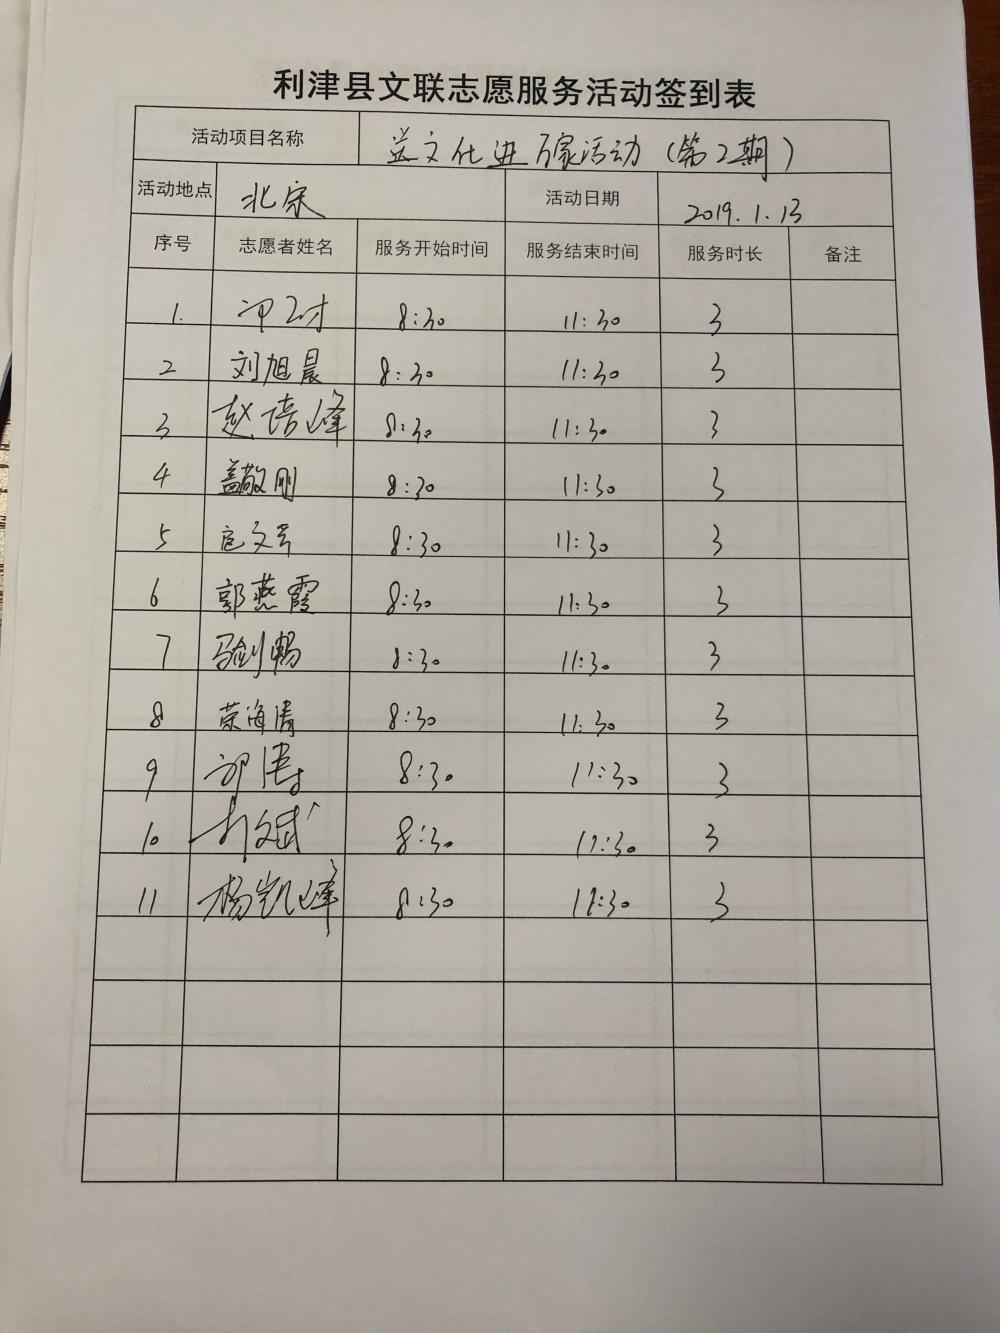 利津县文联志愿服务活动签到表
活动项目名称 益文化进万家活动（第2期）
活动地点 北宋 活动日期 2019.1.13
序号 志愿者姓名 服务开始时间 服务结束时间 服务时长 备注
1. 8:30 11:30 3
2 刘旭晨 8:30 11:30 3
3 赵培峰 8:30 11:30 3
4 盖敬刚 8:30 11:30 3
5 8:30 11:30 3
6 郭燕霞 8:30 11:30 3
7 马剑畅 8:30 11:30 3
8 荣海清 8:30 11:30 3
9 8:30 11:30 3
10 8:30 11:30 3
11 杨凯峰 8:30 11:30 3